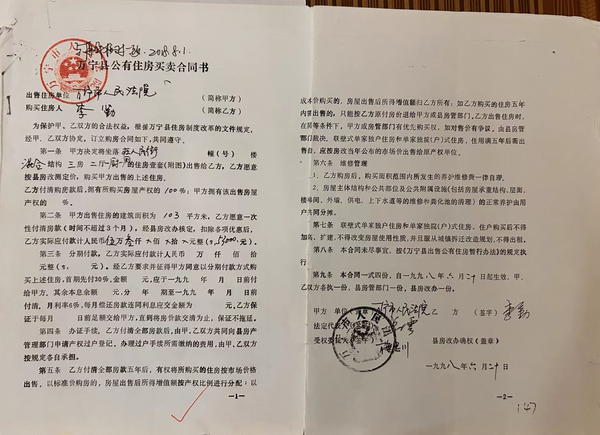 2018.8.1.
万宁县公有住房买卖合同书
出售住房单位 万宁市人民法院 (简称甲方)
购买住房人 李勤 (简称乙方)
为保护甲、乙双方的合法权益，根据万宁县住房制度改革的文件规定，
经甲、乙双方协定，订立购房合同如下，共同遵守。
第一条 甲方决定将坐落 人民街 幢(号) 楼
混合结构 三房二厅 的住房壹套(附图)出售给乙方，乙方愿意
按县房改测定价，购买甲方出售的上述住房。
乙方付清购房款后，拥有所购买房屋产权的 100%；甲方拥有该房屋
产权的 %。
第二条 甲方出售住房的建筑面积为 103 平方米，乙方愿意一次
性付清房款(时间不超过3个月)，经县房改办核定，扣除各项优惠后，
乙方实际应付款计人民币 伍万叁仟 佰 拾 元整(￥: 53000 元)。
第三条 分期付款。乙方实际应付款计人民币 万 仟 佰 拾
元整(￥: 元)。经乙方要求并征得甲方同意以分期付款方式购
买上述住房，首期先付30%，金额 元，应于一九 年 月 日前付
给甲方，其余本息金额 元，分 年期至一九 年 月 日前
付清。月利率6‰，每月偿还房款连同利息应交金额为 元，乙方保
证于每月 日前足额交给甲方，直到将房价款交清为止，保证不拖延。
第四条 办证手续。乙方付清全部房款后，由甲、乙双方共同向县房产
管理部门申请产权过户登记，办理过户手续所需缴纳的费用，由甲、乙双方
按规定各自承担。
第五条 乙方付清全部房款五年后，有权将所购买的住房按市场价格
出售，以标准价购房的，房屋出售后所得增值额按产权比例进行分配；以
—1—
成本价购买的 房屋出售后所得增值额归乙方所有；如乙方购买的住房五年
内要出售的，只能按乙方原付房价退给甲方或县房管部门，乙方出售住房时，
在同等条件下，甲方或房管部门有优先购买权。如对售价有争议，由县房管
部门裁决。按房改售房联壁式单家独户(院)式住房，住用满五年后需出
售自住房，应按房改当年公布的市场价出售给原产权单位。
第六条 维修管理
1、乙方购房后，购买面积范围内所发生的养护维修费一律自理。
2、房屋主体结构和公共部位及公共附属设施(包括房屋承重结构、层面、
楼梯间、外墙、供电、上下水道等的维修和粪化池的清理)的正常养护由用
户共同分摊。
第七条 联壁式单家独户住房和单家独院(户)式住房，住户购买后不得
加高、扩建，不得改变房屋使用性质，并且服从城镇拆迁改造规划，不得出租。
第八条 本合同未尽事宜，按《万宁县出售公有住房暂行办法》的规定执
行。
第九条 本合同一式四份，自一九九八年六月二十日起生效。甲、乙
双方各执一份，县房管部门一份，县房改办一份。
甲方单位 万宁市人民法院 乙方 (签字) 李勤
法定代表 (签章)
受权委托人(签章) 县房改办确权(盖章)
一九九八年六月二十日
—2—
147